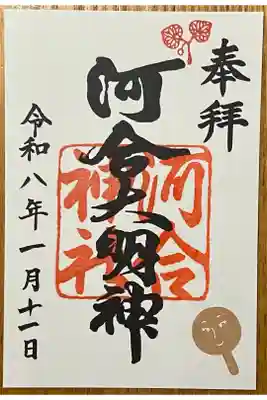 奉拝
河合大明神
河合神社
令和八年一月十一日